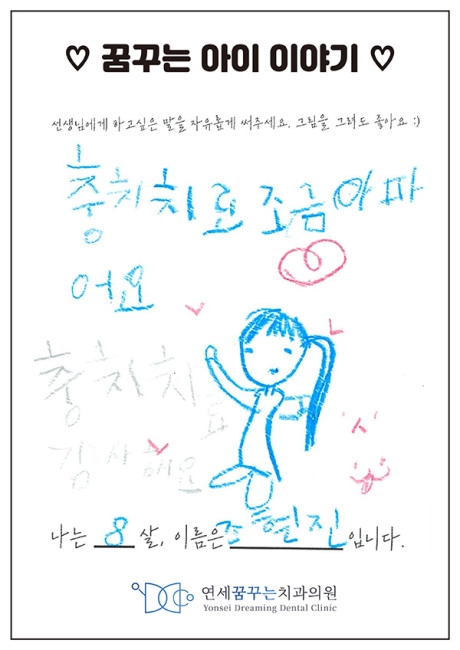 ♡ 꿈꾸는 아이 이야기 ♡
선생님에게 하고싶은 말을 자유롭게 써주세요. 그림을 그려도 좋아요 :)
충치 치료 조금 아파
어요
충치 치
료
김사해요
나는 8 살, 이름은 조현진 입니다.
연세꿈꾸는치과의원
Yonsei Dreaming Dental Clinic